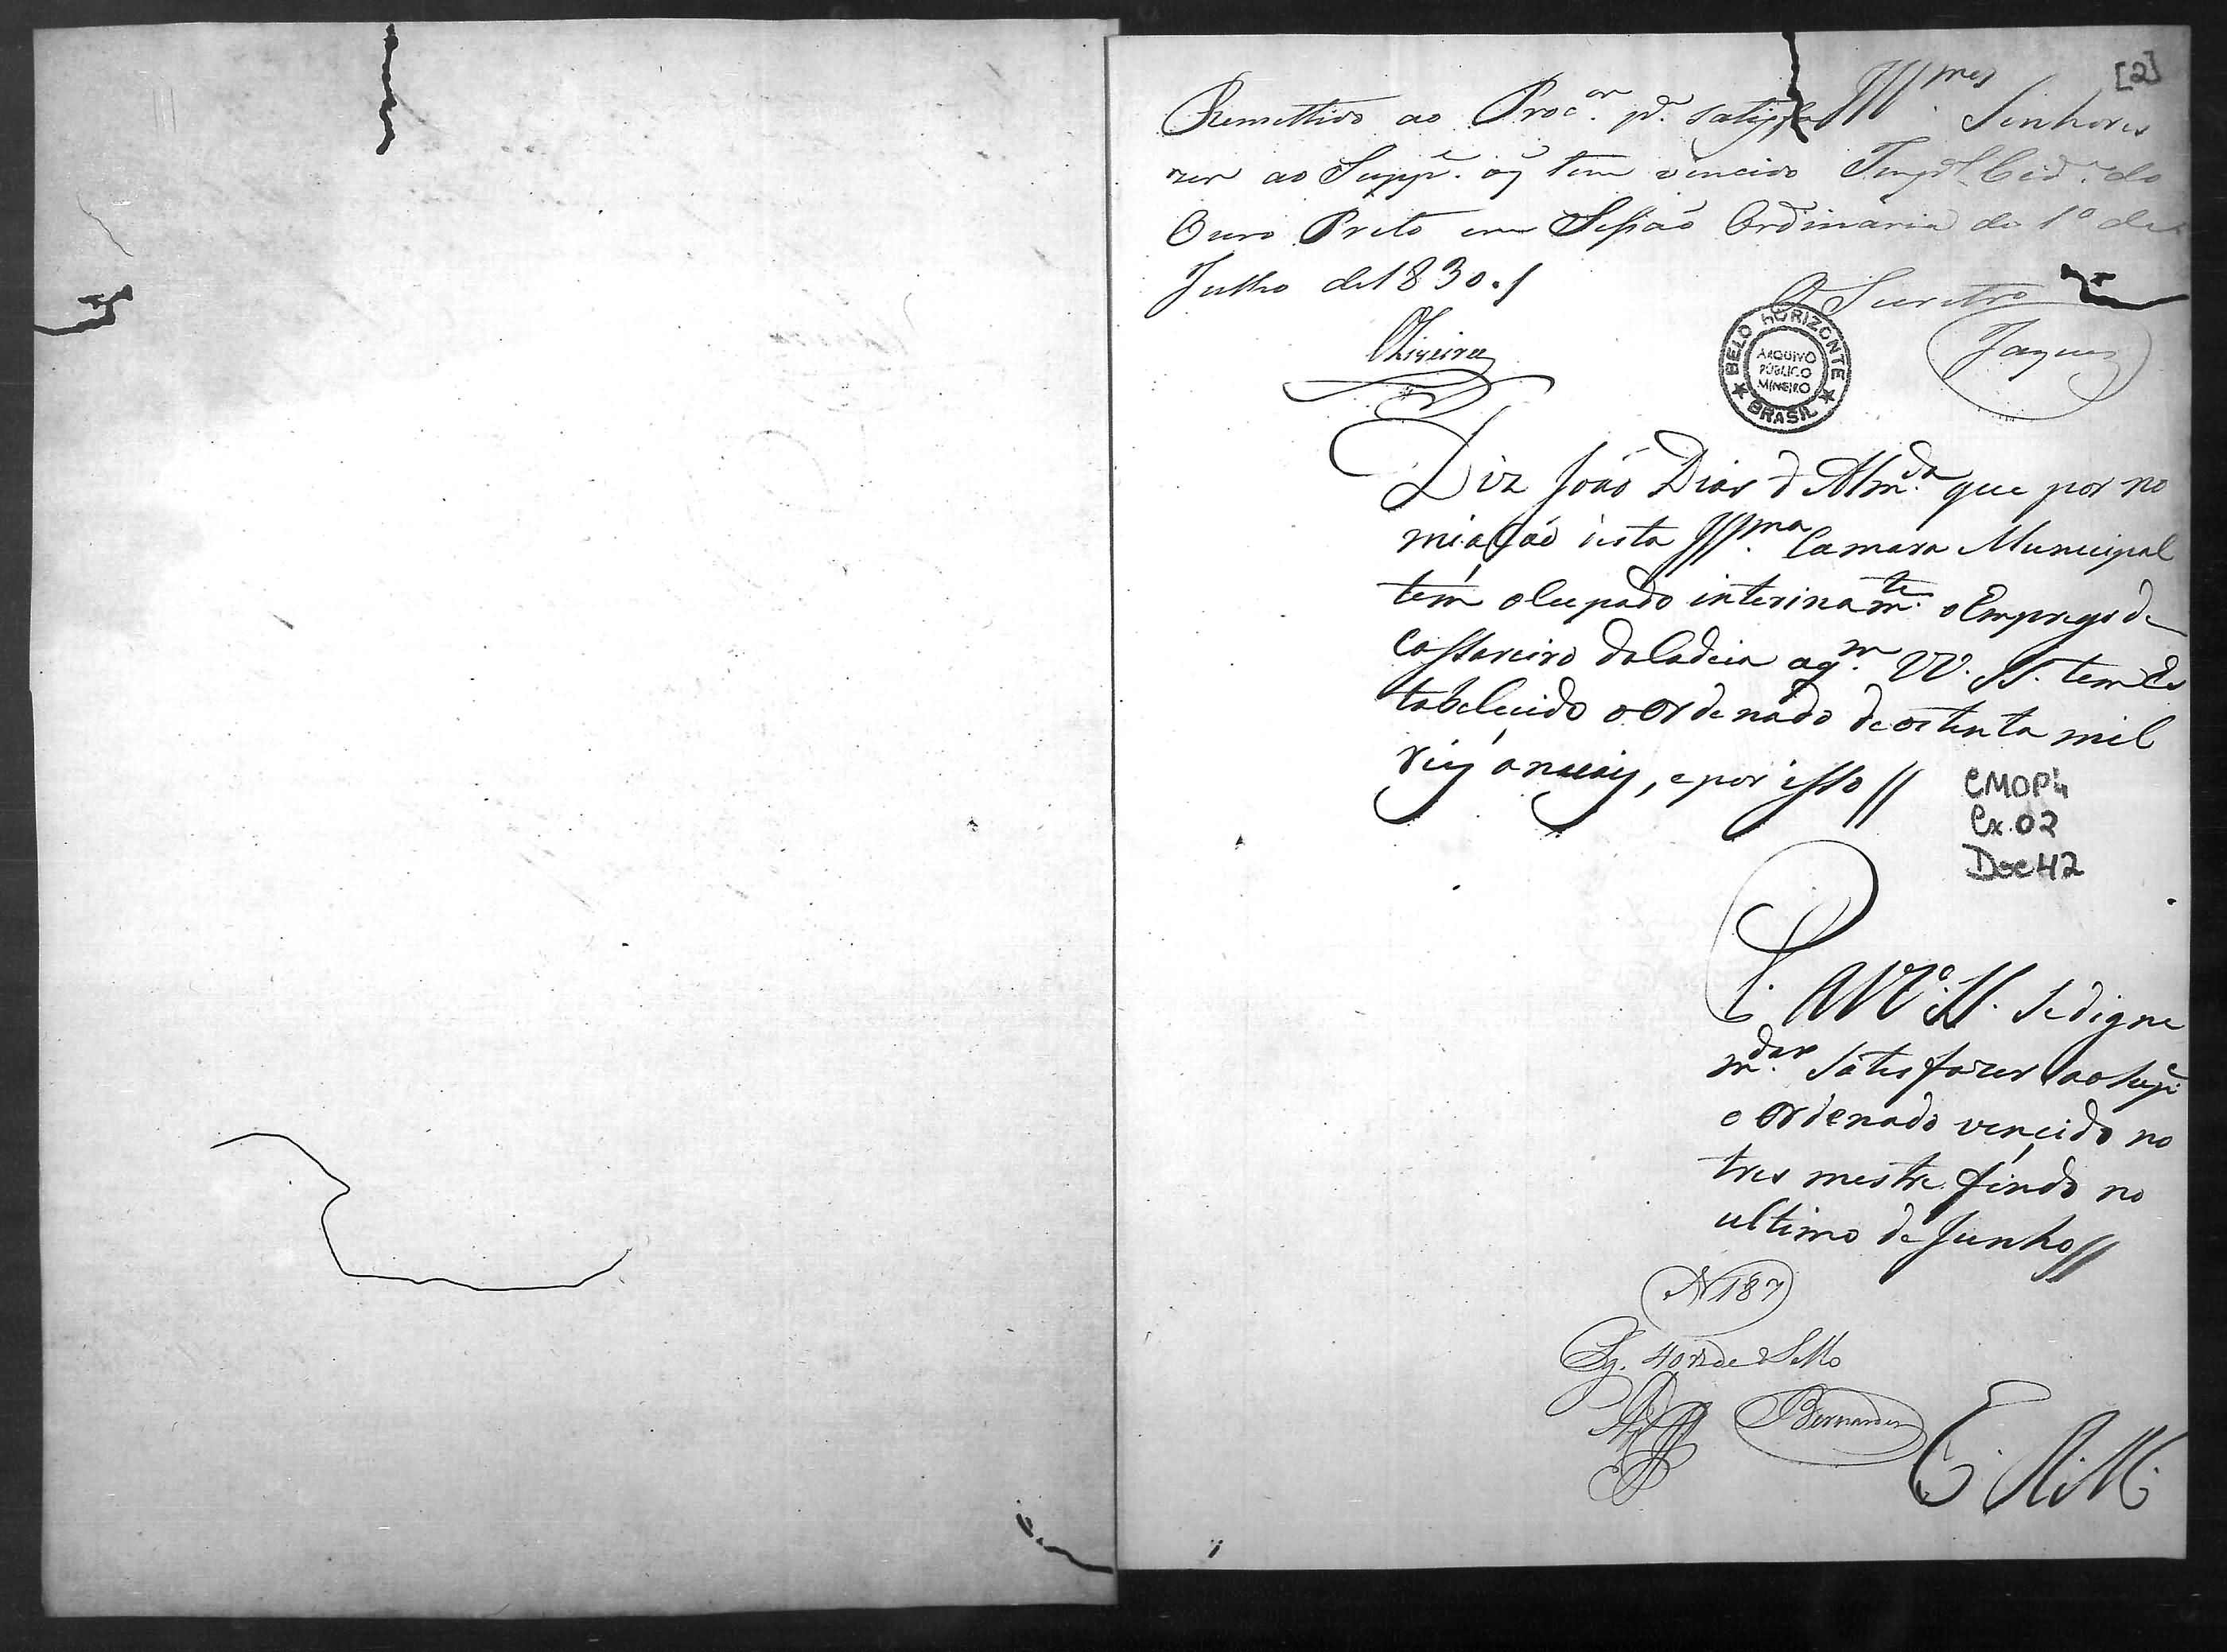 [2]
Illmes Senhores
Remettido ao Procor. pa. satisfa
zer ao Suppe. oq tem vencido Impal. Cide. do
Ouro Preto em Sessaõ Ordinaria do 1º de
Julho de 1830./
O Secretro
Oliveira
Jaques
BELO HORIZONTE
ARQUIVO
PÚBLICO
MINEIRO
BRASIL
Diz Joaõ Dias d' Almda. que por no
miaçaõ desta Illma Camara Municipal
tem occupado interinamte. o Emprego de
Cassareiro da Cadeia aqm. VV. SS. tem Es
tabelecido o ordenado de oitenta mil
reis anuais, e por isso //
CMOP4
Cx.02
Doc 42
P. a VVas. SS. se digne
mdar. satisfazer ao Suppe
o ordenado vencido no
tres mestre findo no
ultimo de Junho //
N 187
Pg. 40 rs de Sello
Bernardes
E. R. M.